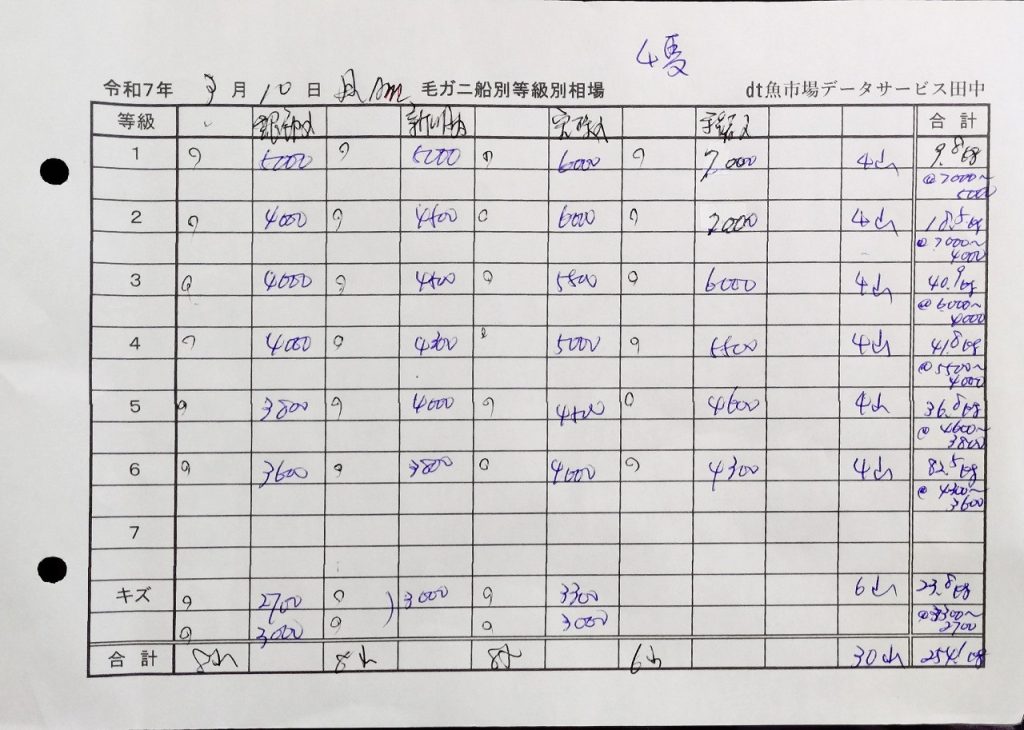 4隻
令和7年 3月10日 月 毛ガニ船別等級別相場 dt魚市場データサービス田中
等級 合計
1 5000 5200 6000 7000 4山 9.8kg
@7000~
5000
2 4000 4800 6000 7000 4山 18.5kg
@7000~
4000
3 4000 4800 5800 6000 4山 40.9kg
@6000~
4000
4 4000 4300 5000 5500 4山 41.8kg
@5500~
4000
5 3800 4000 4800 4600 4山 36.8kg
@4600~
3800
6 3600 3800 4000 4300 4山 82.5kg
@4300~
3600
7
キズ 2700 ) 3000 3300 6山 23.8kg
3000 3000 @3300~
2700
合計 8山 8山 8山 6山 30山 254.1kg